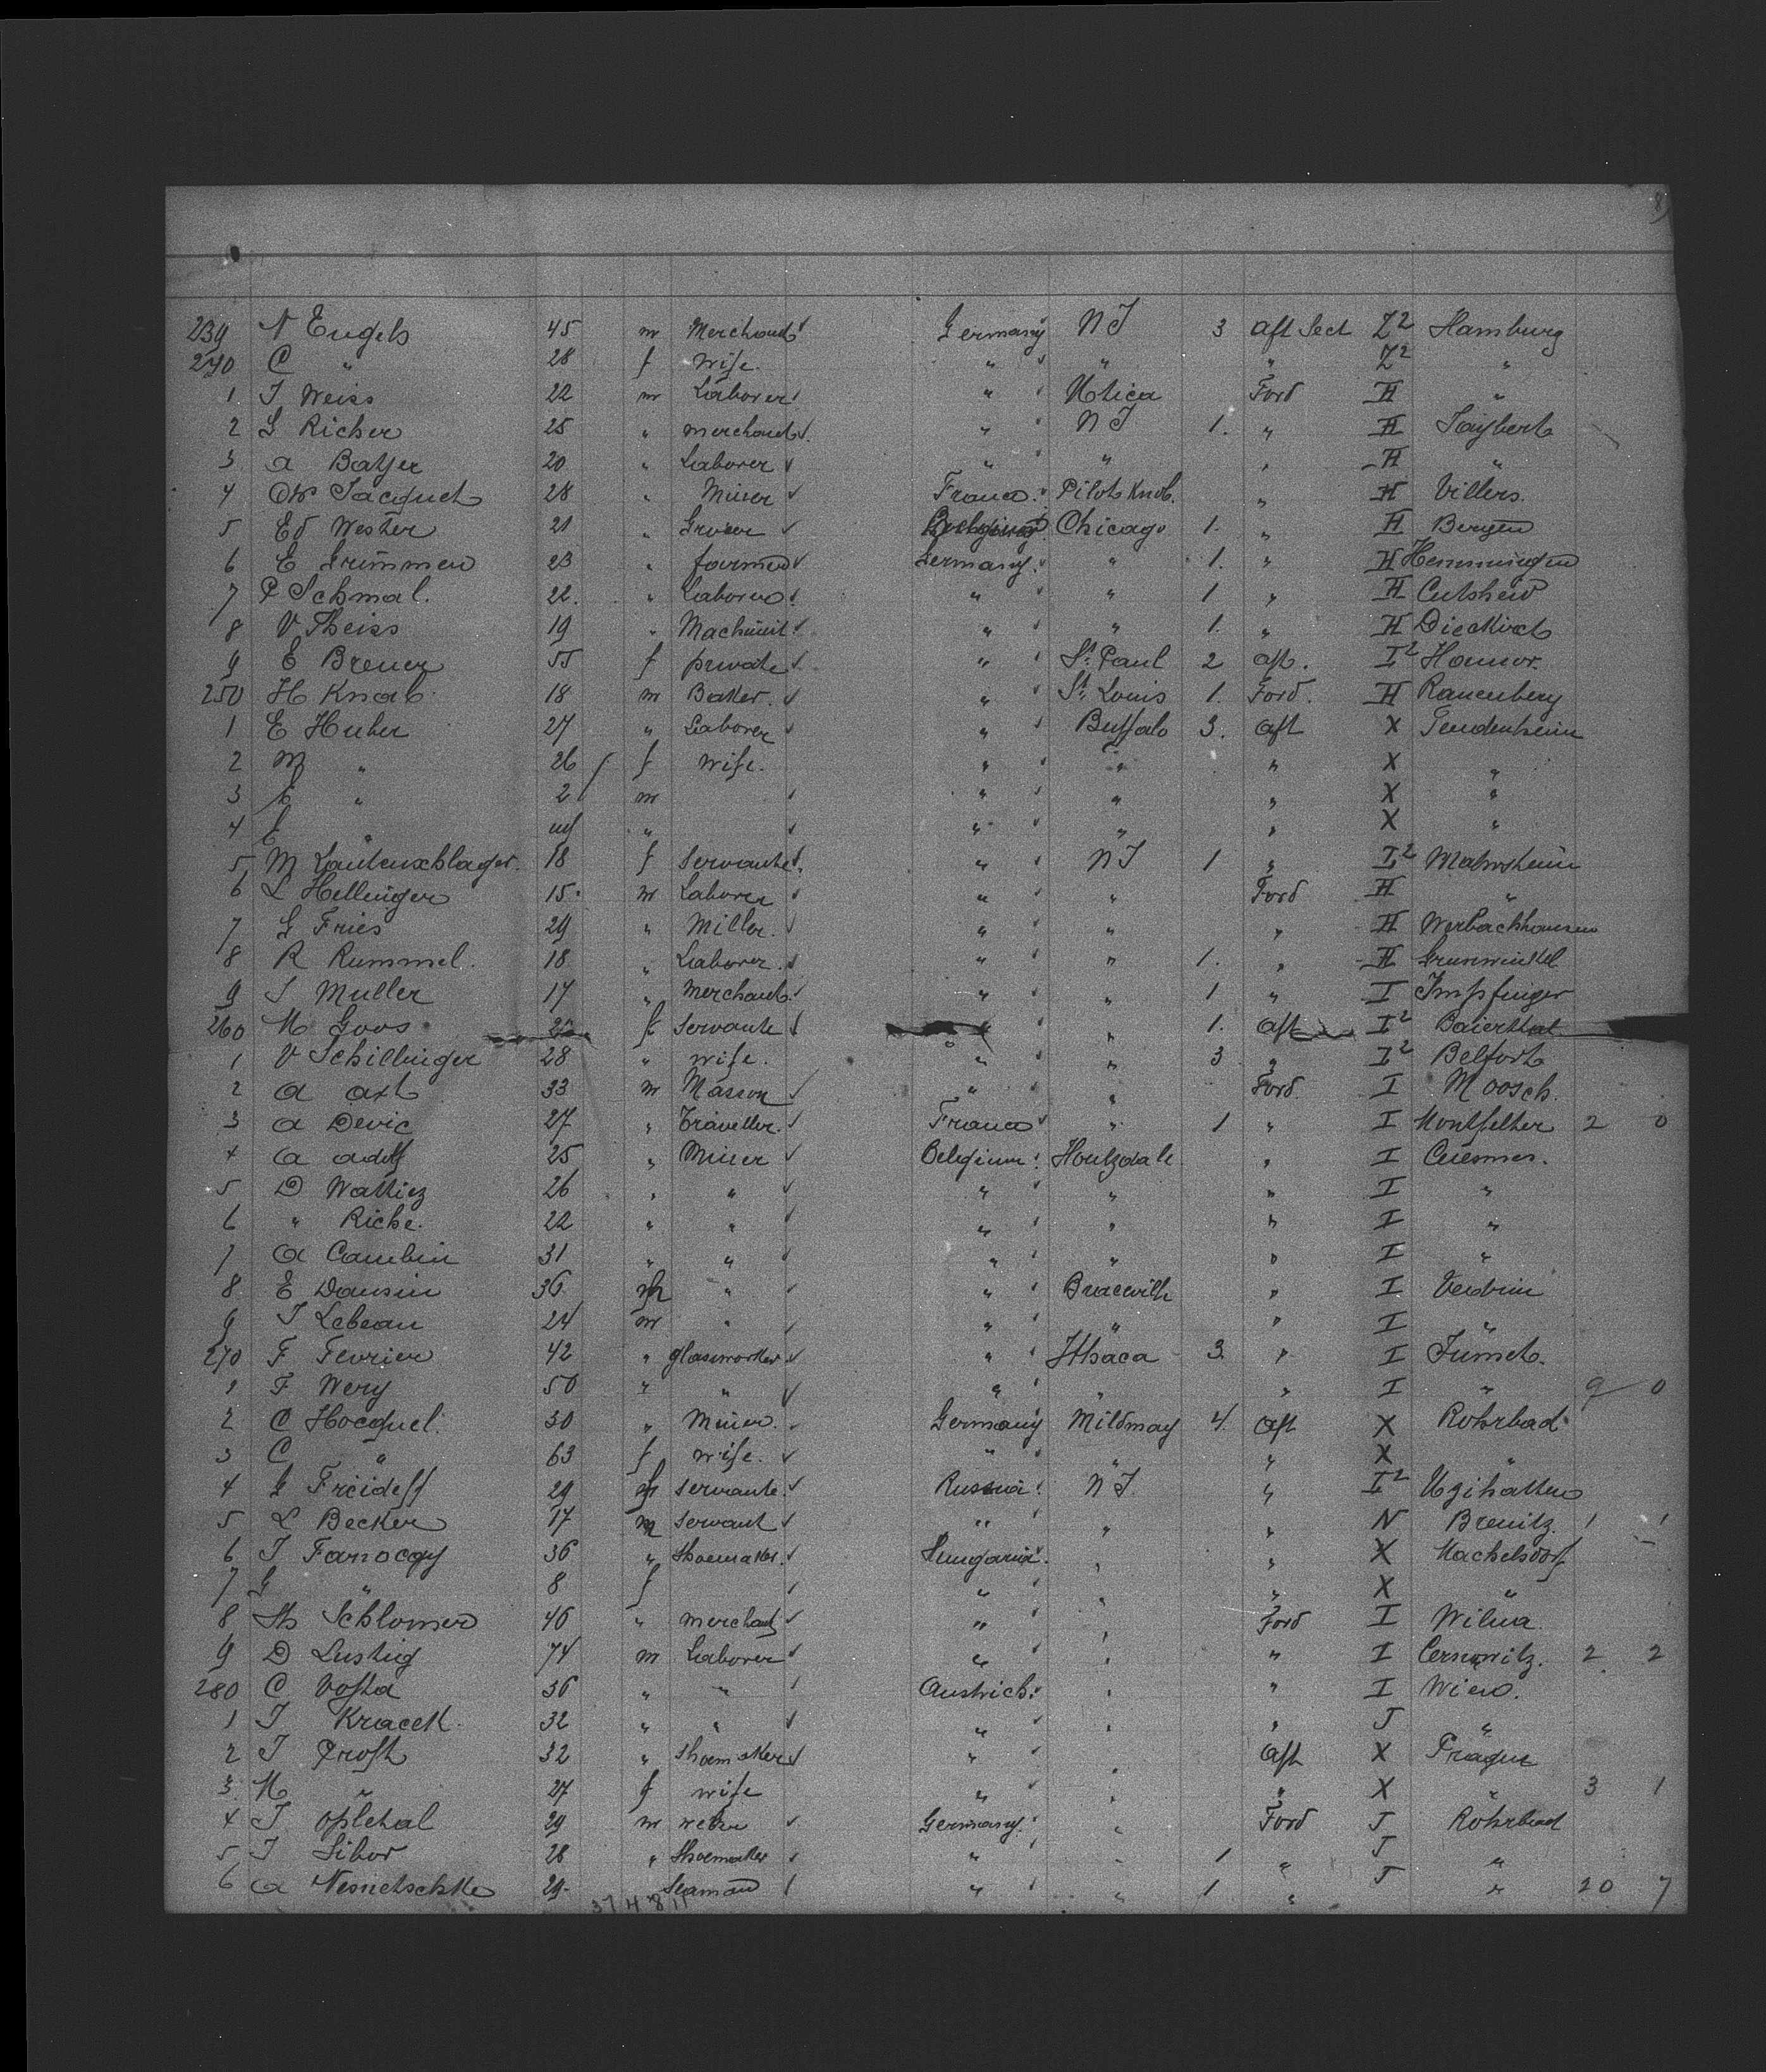 8)
239 N Engels 45 m Merchant Germany NY 3 aft Sect Z2 Hamburg
240 C " 28 f Wife. " " " Z2 "
1 J Weiss 22 m Laborer " Utica Ford H "
2 G Richer 25 " merchant " NY 1. " H Saybert
3 a 20 " Laborer " " " H "
4 Jacquet 28 " Miner France Pilot Knob. " H Villers.
5 Ed Wester 21 " Grocer Chicago 1. " H Bergen
6 E Grümmen 23 " Germany " 1. " H Hemmingen
7 P Schmal. 22. " Laborer " " 1 " H
8 V Theiss 19 " Machinist " " 1. " H Dieckirch
9 E Breuer 55 f private " St Paul 2 aft. I2
250 H Knab 18 m Baker. " St. Louis 1. Ford. H Rauenberg
1 E Huber 27 " Laborer " Buffalo 3. aft X
2 M " 26 f wife. " " " X "
3 " 2 m " " " X "
4 E " inf " " " " X "
5 M Lautenschlager. 18 f Servante " NY 1 " I2
6 L Hellinger 15 m Laborer " " Ford H "
7 G Fries 29 " Miller. " " " H Werbachhausen
8 R Rummel. 18 " Laborer. " " 1. " H Grunwinkel
9 J Muller 17 " Merchant " " 1 " I Impfinger
260 M Goos f Servante " " 1. aft I2 Baierthal
1 V Schillinger 28 " wife. " " 3 " I2 Belfort
2 a axt 33 m Masson " " Ford. I Moosch.
3 a Devic 27 " Traveller. France " 1 " I Montpelher 2 0
4 a adolf 25 " Miner Belgium Houtzdale " I Cuesmes.
5 D Wattiez 26 " " " " " I "
6 " Riche. 22 " " " " " I "
7 a Cambin 31 " " " " " I "
8 E Dausin 36 m " " Bracevill " I Vedrin
9 J Lebeau 24 m " " " " I "
270 F Fevrier 42 " glasworker " Ithaca 3. " I Jumet.
1 F Wery 50 " " " " " I " 9 0
2 C Hocquel. 30 " Miner. Germany Mildmay 4. aft X Rohrbad
3 C " 63 f wife. " " " X "
4 G Freideff 29 f servante. Russia NY " I2
5 L Becker 17 m servant " " " N Brenitz. 1 1
6 J Farnocqy 36 " Shoemaker. Hungaria. " " X Machelsdorf
7 G " 8 f " " " X "
8 Schlomer 46 " merchant " " Ford I Wilna.
9 D Lustig 74 m Laborer " " " I Cernowitz. 2 2
280 C Vosta 36 " " Austrich. " " I Wien.
1 J Kracek 32 " " " " " J "
2 J Prost 32 " Shoemaker " " aft X Prague
3. M " 27 f wife " " " X " 3 1
4 J opletal 29 m Germany. " Ford J Rohrbad
5 J Sibor 28 " Shoemaker " " 1 " J "
6 a 29 Seaman " " 1 " J " 20 7